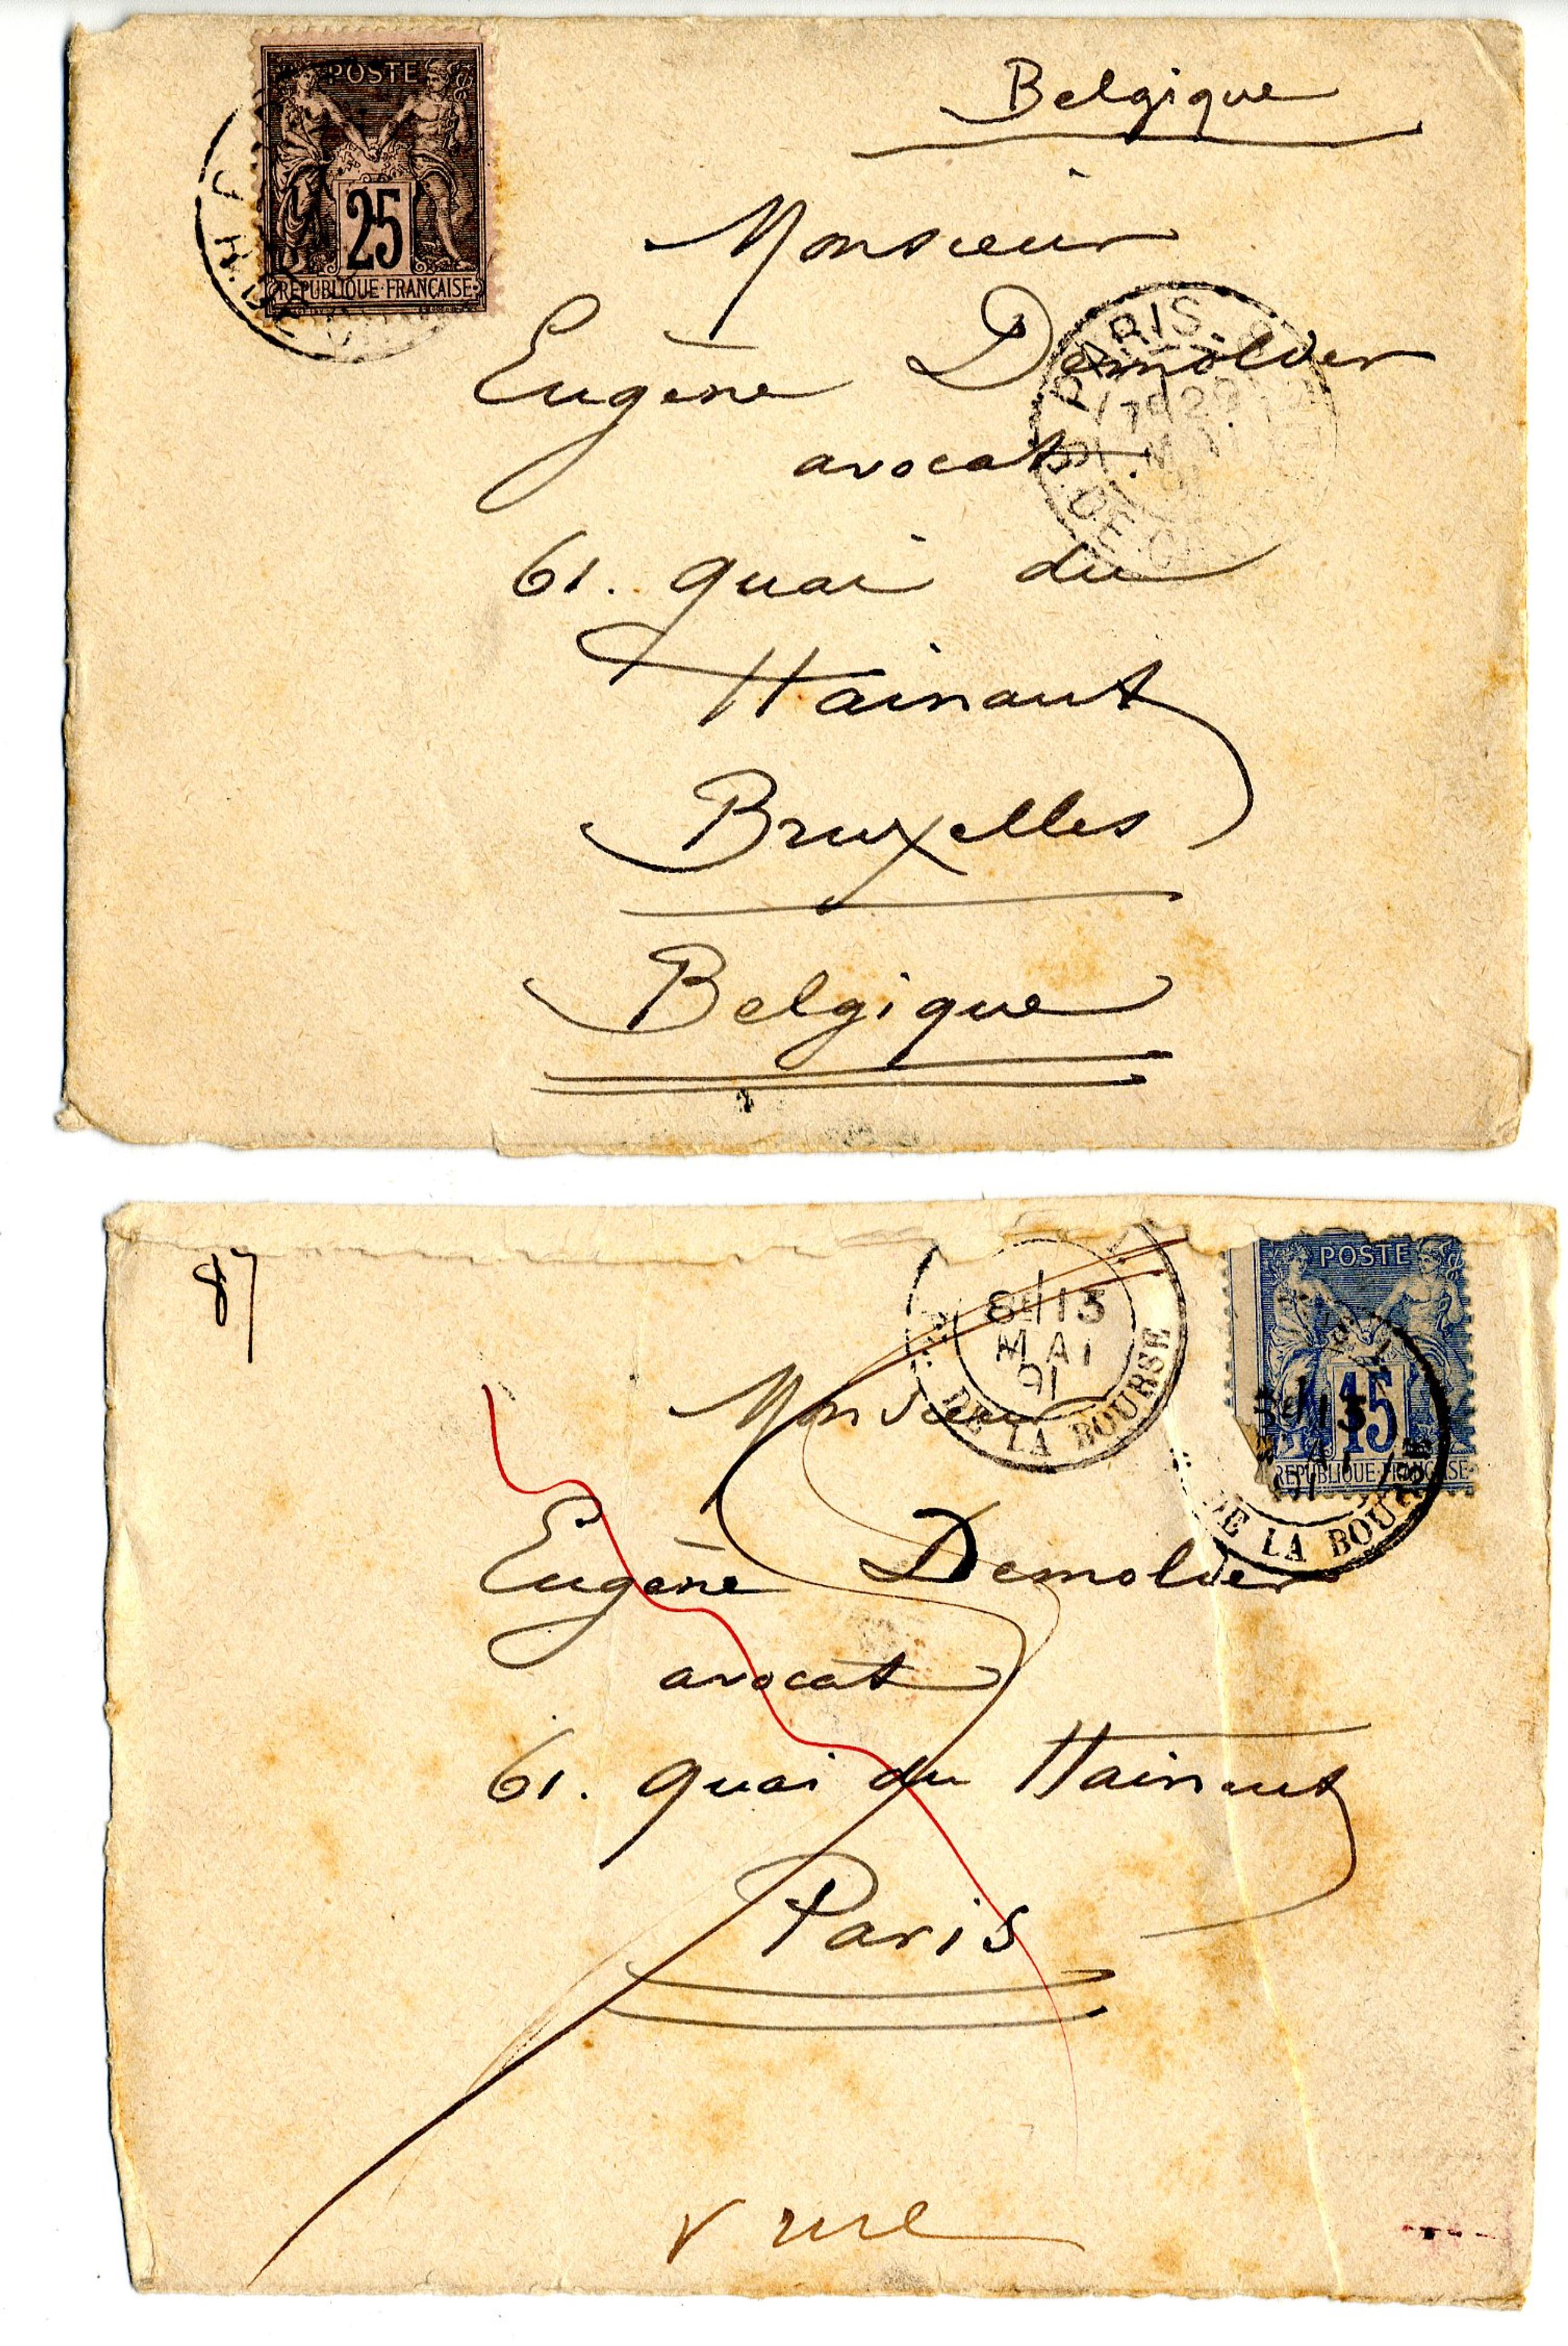 POSTE
25
REPUBLIQUE·FRANCAISE
Belgique
Monsieur
Eugène Demolder
PARIS
avocat.
DE
61. quai du
Hainaut
Bruxelles
Belgique
87
POSTE
15
REPUBLIQUE·FRANCAISE
8E 13
MAI
91
DE LA BOURSE
DE LA BOURSE
Monsieur
Eugène Demolder
avocat
61. quai du Hainaut
Paris